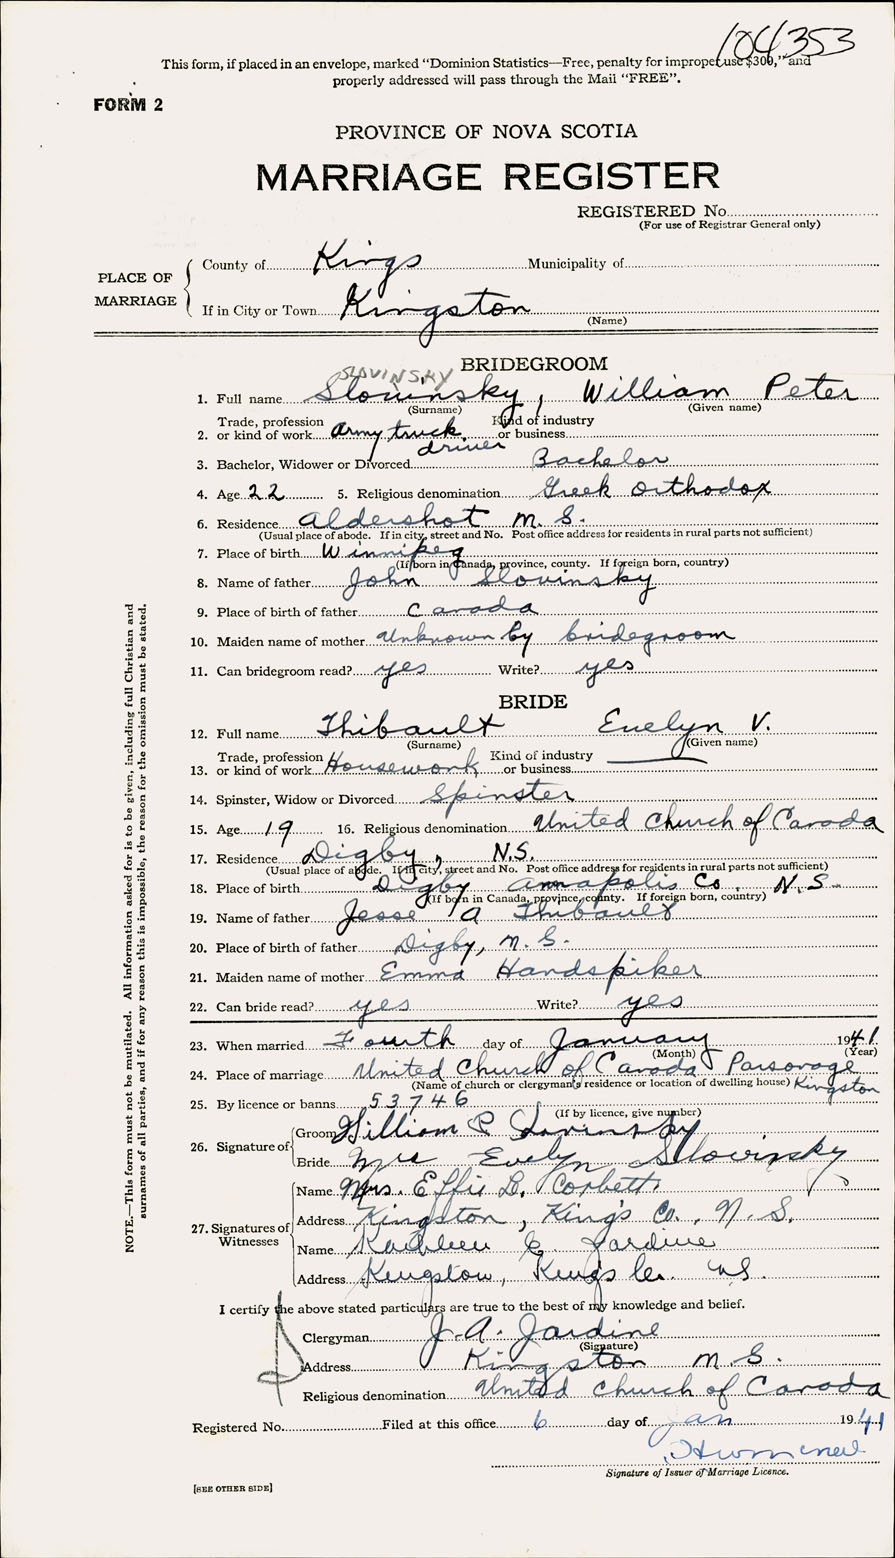 104353
This form, if placed in an envelope, marked "Dominion Statistics—Free, penalty for improper use $300," and
properly addressed will pass through the Mail "FREE".
FORM 2
PROVINCE OF NOVA SCOTIA
MARRIAGE REGISTER
REGISTERED No.
(For use of Registrar General only)
PLACE OF MARRIAGE
County of Kings Municipality of
If in City or Town Kingston
(Name)
BRIDEGROOM
SLOVINSKY
1. Full name Slovinsky, William Peter
(Surname) (Given name)
2. Trade, profession or kind of work Army truck driver Kind of industry or business
3. Bachelor, Widower or Divorced Bachelor
4. Age 22 5. Religious denomination Greek Orthodox
6. Residence Aldershot N. S.
(Usual place of abode. If in city, street and No. Post office address for residents in rural parts not sufficient)
7. Place of birth Winnipeg
(If born in Canada, province, county. If foreign born, country)
8. Name of father John Slovinsky
9. Place of birth of father Canada
10. Maiden name of mother Unknown by bridegroom
11. Can bridegroom read? yes Write? yes
BRIDE
12. Full name Thibault Evelyn V.
(Surname) (Given name)
13. Trade, profession or kind of work Housework Kind of industry or business
14. Spinster, Widow or Divorced Spinster
15. Age 19 16. Religious denomination United Church of Canada
17. Residence Digby, N.S.
(Usual place of abode. If in city, street and No. Post office address for residents in rural parts not sufficient)
18. Place of birth Digby Annapolis Co. N.S.
(If born in Canada, province, county. If foreign born, country)
19. Name of father Jesse A Thibault
20. Place of birth of father Digby, N. S.
21. Maiden name of mother Emma Handspiker
22. Can bride read? yes Write? yes
23. When married Fourth day of January 1941
(Month) (Year)
24. Place of marriage United Church of Canada Parsonage
(Name of church or clergyman's residence or location of dwelling house) Kingston
25. By licence or banns 53746
(If by licence, give number)
26. Signature of Groom William P Slovinsky
Bride Mrs Evelyn Slovinsky
27. Signatures of Witnesses
Name Mrs. Effie L. Corbett
Address Kingston, King's Co., N. S.
Name Kathleen E. Jardine
Address Kingston, Kings Co. NS.
I certify the above stated particulars are true to the best of my knowledge and belief.
Clergyman J. A. Jardine
(Signature)
Address Kingston N. S.
Religious denomination United Church of Canada
Registered No. Filed at this office 6 day of Jan 1941
Signature of Issuer of Marriage Licence.
[SEE OTHER SIDE]
NOTE.—This form must not be mutilated. All information asked for is to be given, including full Christian and
surnames of all parties, and if for any reason this is impossible, the reason for the omission must be stated.